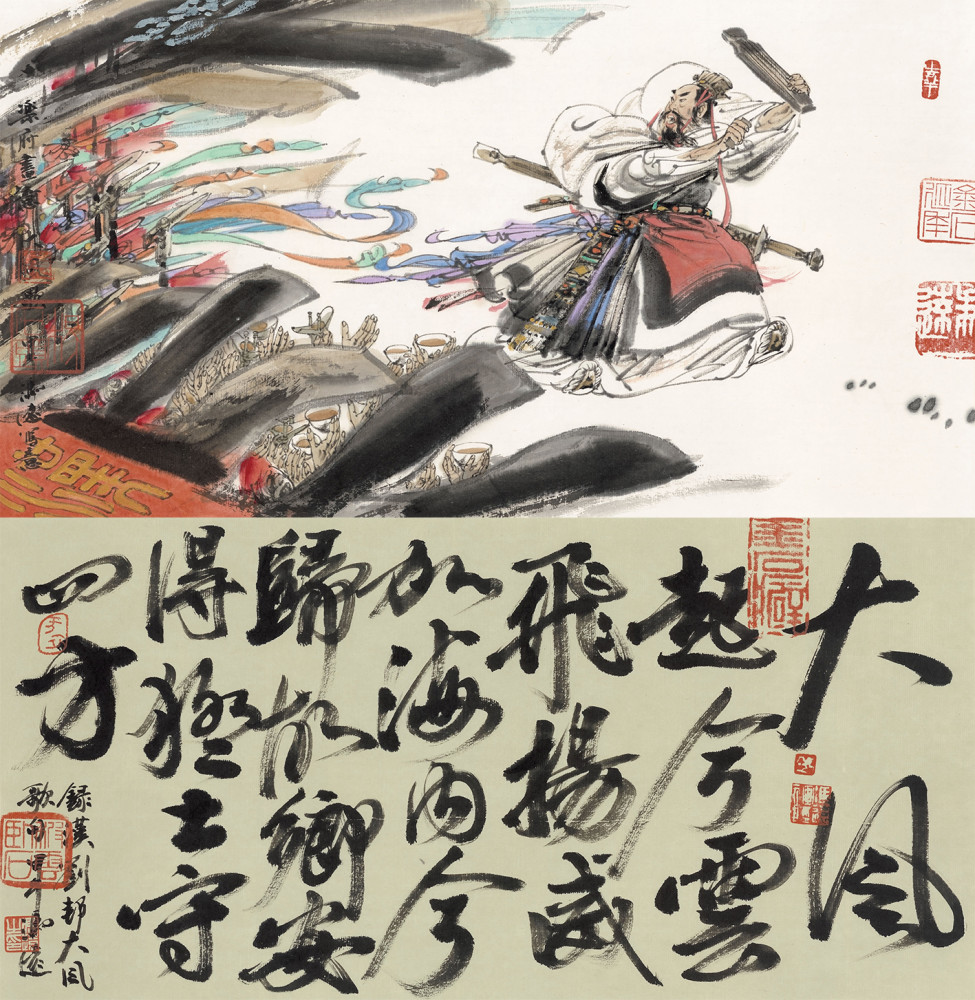 樂府
大風
起兮雲
飛揚威
加海内兮
歸故鄉安
得猛士守
四方
錄漢劉邦大風
歌句